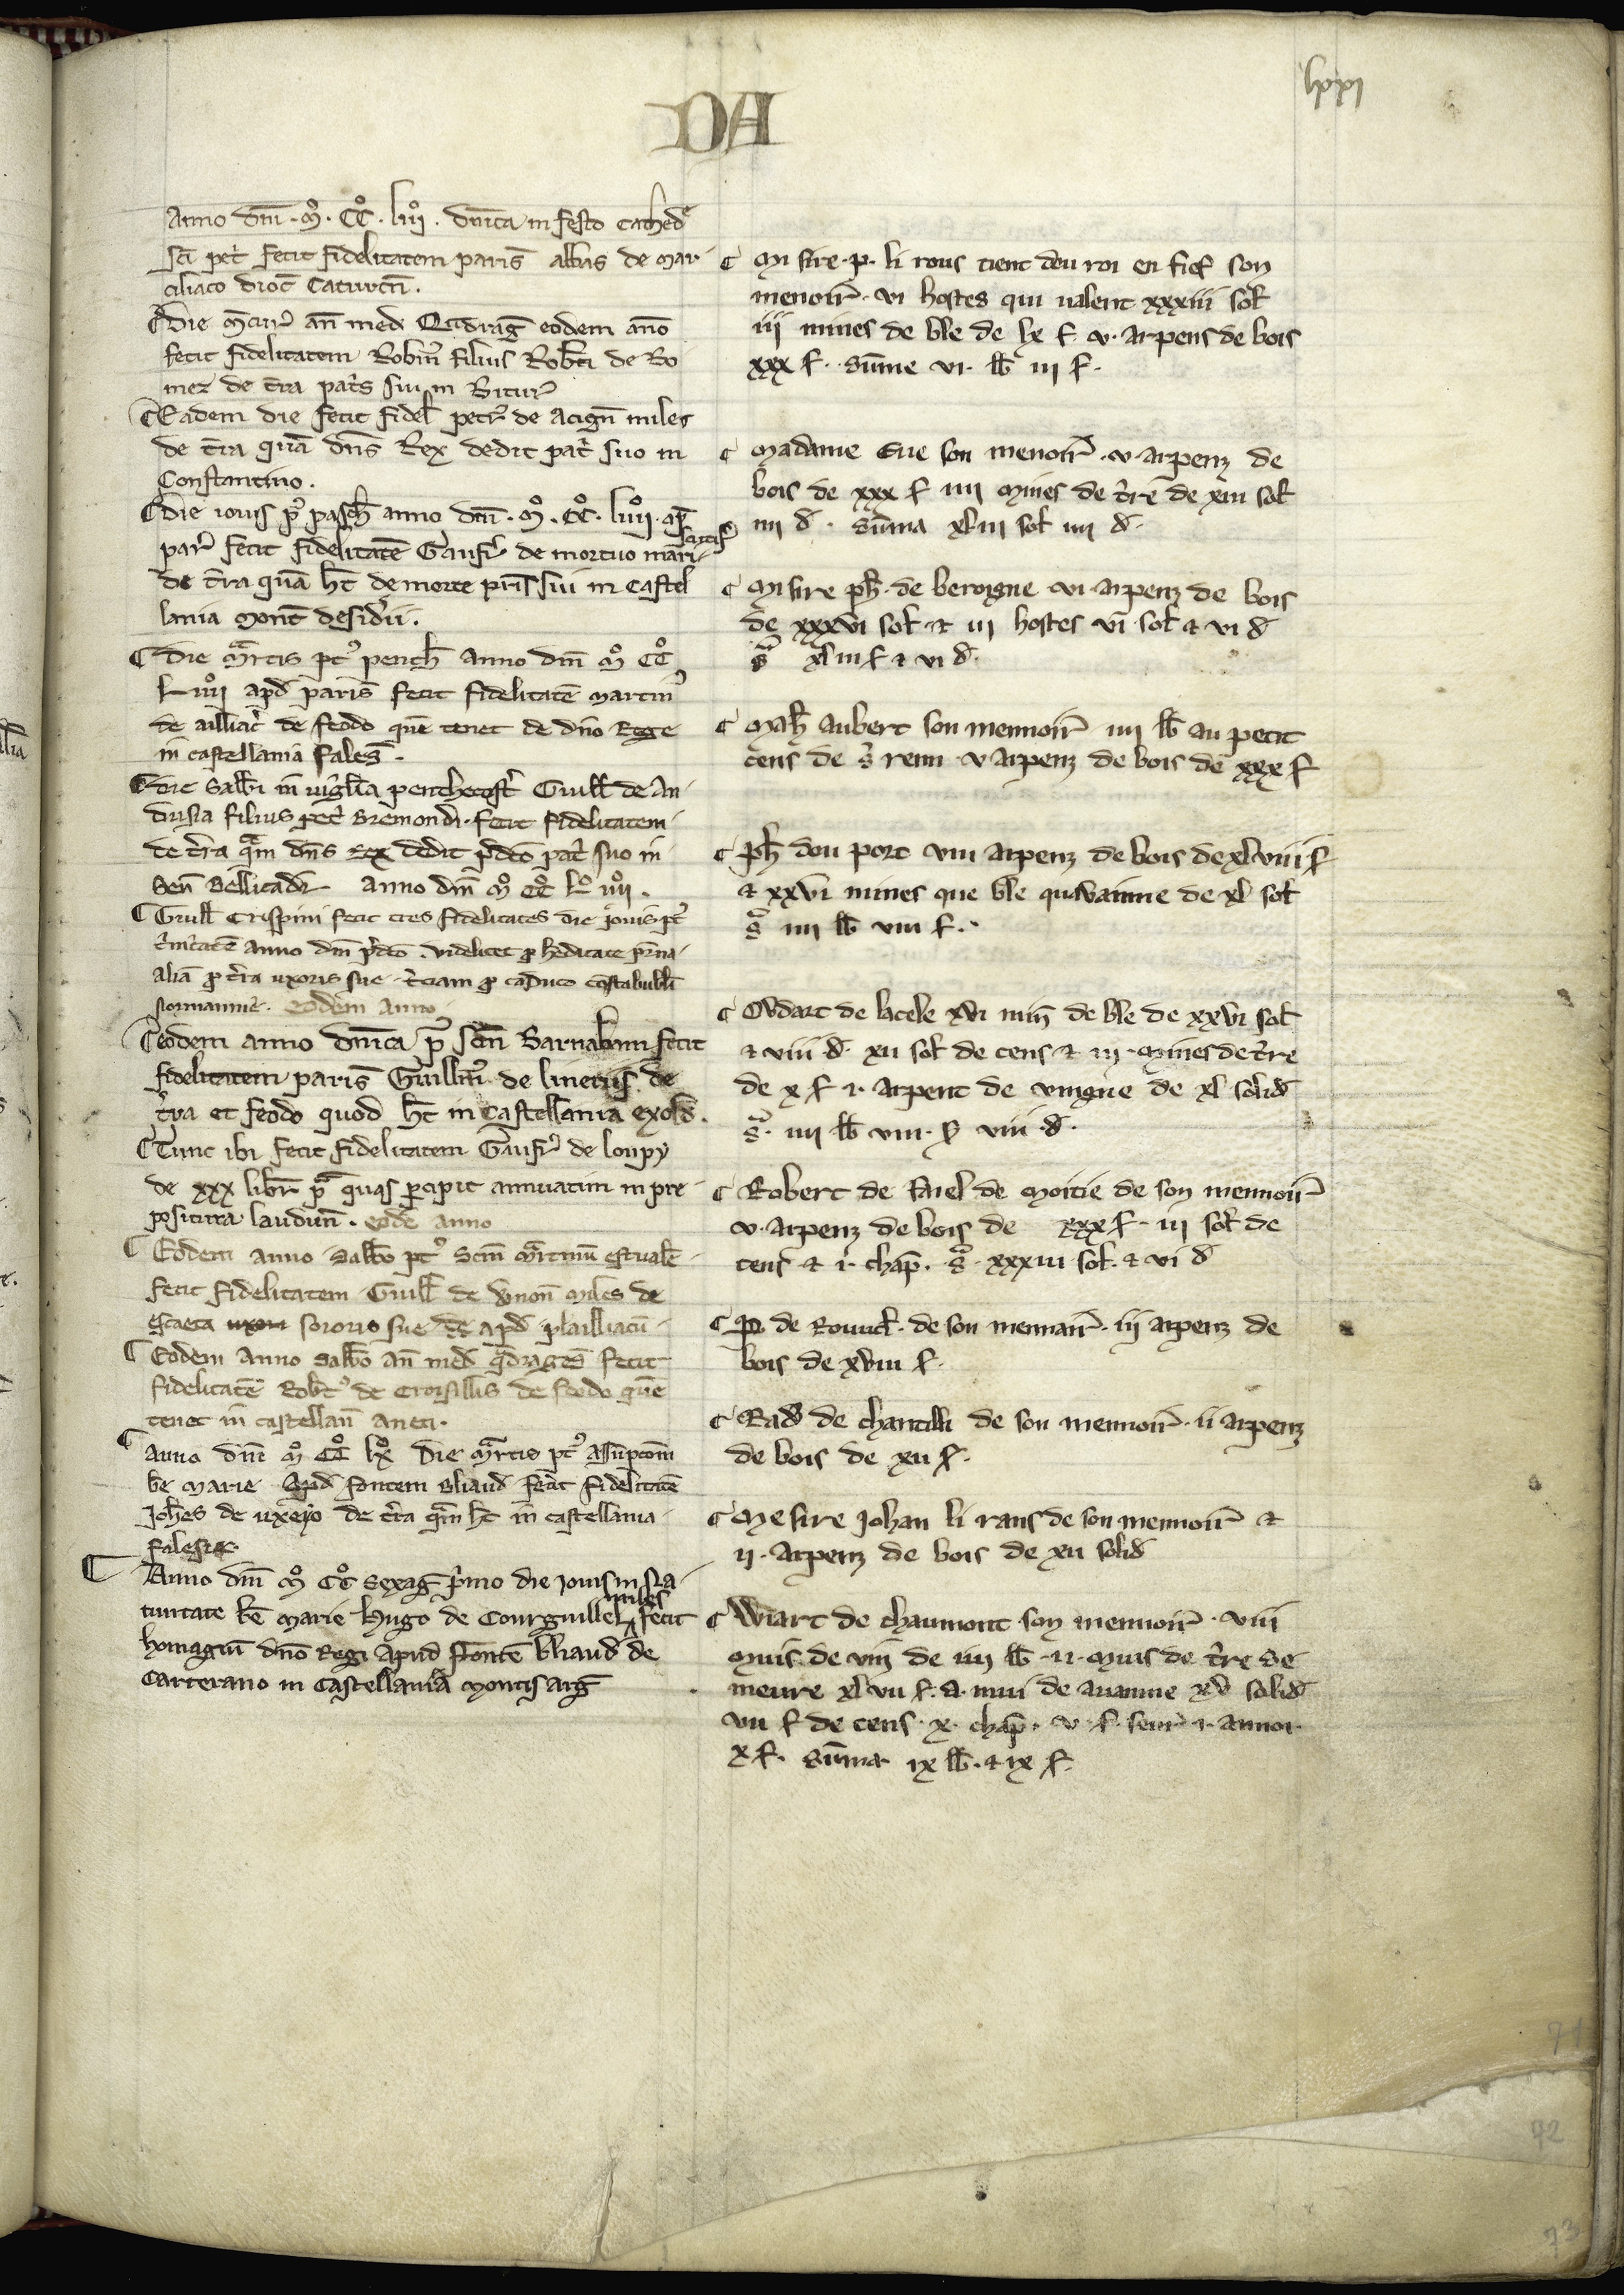 lxxi
DA
Anno dñi · mº · CCº · liiiº · dñica in festo cathedᵉ
sci petᵉ fecit fidelitatem parisᵉ abbas de mar
ciliaco diocᵉ Caturcñ ·
¶ Die mᵉcurᵉ añ medᵉ Qᵃdragᵉ eodem año
fecit fidelitatem Robinᵉ filius Robᵉti de Bo
mez de tᵉra patᵉs sui in Biturᵉ
¶ Eadem die fecit fidelᵉ petrᵉ de Acigñ miles
de tᵉra quā dñs Rex dedit patᵉ suo in
Constantino ·
¶ Die iouis pᵉ pascħ anno dñi · mº · CCº · liiiiº · apᵈ
parᵉ fecit fidelitatē Gaufrᵉ de mortuo mari
de tᵉra quā ht de morte pᵉris sui in castel
lania montᵉ desidᵉii ·
¶ Die mᵃrtis pᵗ penthᵉ Anno dñi mº CCº
Liiiiº apᵈ parisᵉ fecit fidelitatē martinᵉ
de ailliacᵉ de feodo quē tenet de dño Rege
in castellania falesᵉ ·
¶ Die Sabbᵉi in uigᵉlia penthecostᵉ Guillᵉ de An
dusia filius petᵉ Bremondi · fecit fidelitatem
de tᵉra qᵃm dñs Rex dedit pᵉdcō patᵉ suo in
Señ Bellicadᵉi Anno dñi mº CCº Lº iiiiº ·
¶ Guillᵉ Crispini fecit tres fidelitates die Jouis pᵗ
tᵉnitatē anno dñi pᵉdcō · videlicet ꝓ hᵉeditate pᵉma
aliā ꝓ tᵉra uxoris sue · tᵉciam ꝓ caduco conᵉstabulᵉi
normannie · Eodem Anno
¶ Eodem anno dñica pᵗ scm Barnabam fecit
fidelitatem parisᵉ Guillmᵉ de lineriis de
tᵉra et feodo quod ht in castellania exoldᵉ ·
¶ Tunc ibi fecit fidelitatem Gaufrᵉ de loupy
de xxx librᵉ pᵃ quas ꝑcipit annuatim in pre
positura laudunᵉ · eode anno
¶ Eodem anno Sabbᵒ pᵗ Scm Mᵃrtinū estiualē
fecit fidelitatem Guillᵉ de miles de
escaeta uxori sororis sue de apᵈ plailliacū
¶ Eodem Anno Sabbᵒ añ medᵉ qᵃdragesᵉ fecit
fidelitatē Robtᵉ de Croisillis de feodo quē
tenet in castellañ Aneti ·
¶ Anno dñi mº CCº lxº die mᵃrtis pᵗ assūptōm
bē marie Apᵈ fontem Bliaudᵉ fecit fidelitatē
Johēs de uxeyo de tᵉra qᵃm ht in castellania
falesie
¶ Anno dñi mº CCº Sexagᵉ pᵉmo die iouis in
tiuitate bē marie Hugo de Courguillerᵉ miles fecit
homagiū dño Regi apud fontē bliaudᵉ de
Carterano in castellania Montisargᵉ
¶ Mi sire · p · li rous tient dou roi en fief son
menoirᵉ · vi hostes qui ualent xxxiii solᵉ
iij mines de ble de lx s · v · arpens de bois
xxx s · Sūme vi · lb iii s ·
¶ Madame Eue son menoirᵉ · v · arpenz de
bois de xxx s iiii mines de tᵉre de xiii solᵉ
iiii d · Sūma xliii solᵉ iiii d ·
¶ Misire phᵉ · de beroigne vi · arpenz de bois
de xxxvi solᵉ & iij hostes vi solᵉ & vi d
sᵃ xlii s & vi d ·
¶ Mahᵉ aubert son menoirᵉ iiii lb au petit
cens de sᵉ remi · v arpenz de bois de xxx s
¶ Phᵉ dou port viii arpenz de bois de xlviii s
& xxvi mines que ble que auaine de xl solᵉ
sᵃ iiii lb viii s ·
¶ Oudart de lacele xvi minᵉ de ble de xxvi solᵉ
& viii d · xii solᵉ de cens & iii · mines de tᵉre
de x s i · arpent de vingne de xl solid
sᵃ · iiii lb viii · s viii · d ·
¶ Robert de faiel de moitie de son mennoirᵉ
v · arpenz de bois de xxx s · iii solᵉ de
cens & i · chapᵉ · sᵃ · xxxiii solᵉ · & vi d
¶ P de · de son mennairᵉ · iij arpenz de
bois de xviii s ·
¶ Radᵉ de chantilli de son mennoirᵉ · ii arpenz
de bois de xii s ·
¶ Me sire Johan li rans de son mennoirᵉ &
ij · arpenz de bois de xii solid
¶ Wiart de chaumont son mennoirᵉ · viii
muis de vin de iiii lb · ii · muis de tᵉre se
meure xlvii s · & · i mui de auainne xv solid
vii s de cens · x · chapᵉ · v · s · seur i · annoi
x s · Sūma ix lb · & ix s ·
71
72
73